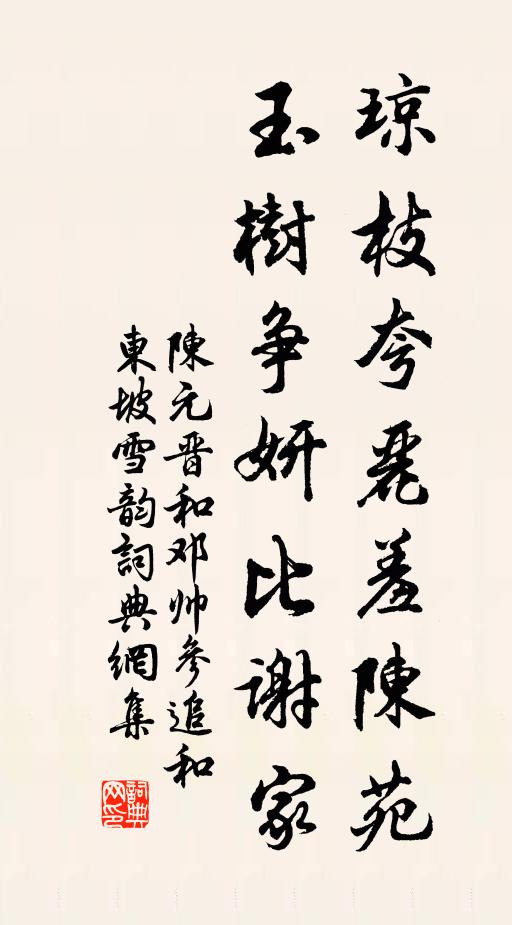 琼枝夸麗羞陳苑
玉樹争妍比謝家
陳元晋和邓帅參追和
東坡雪韵詞典網集
詞典网印